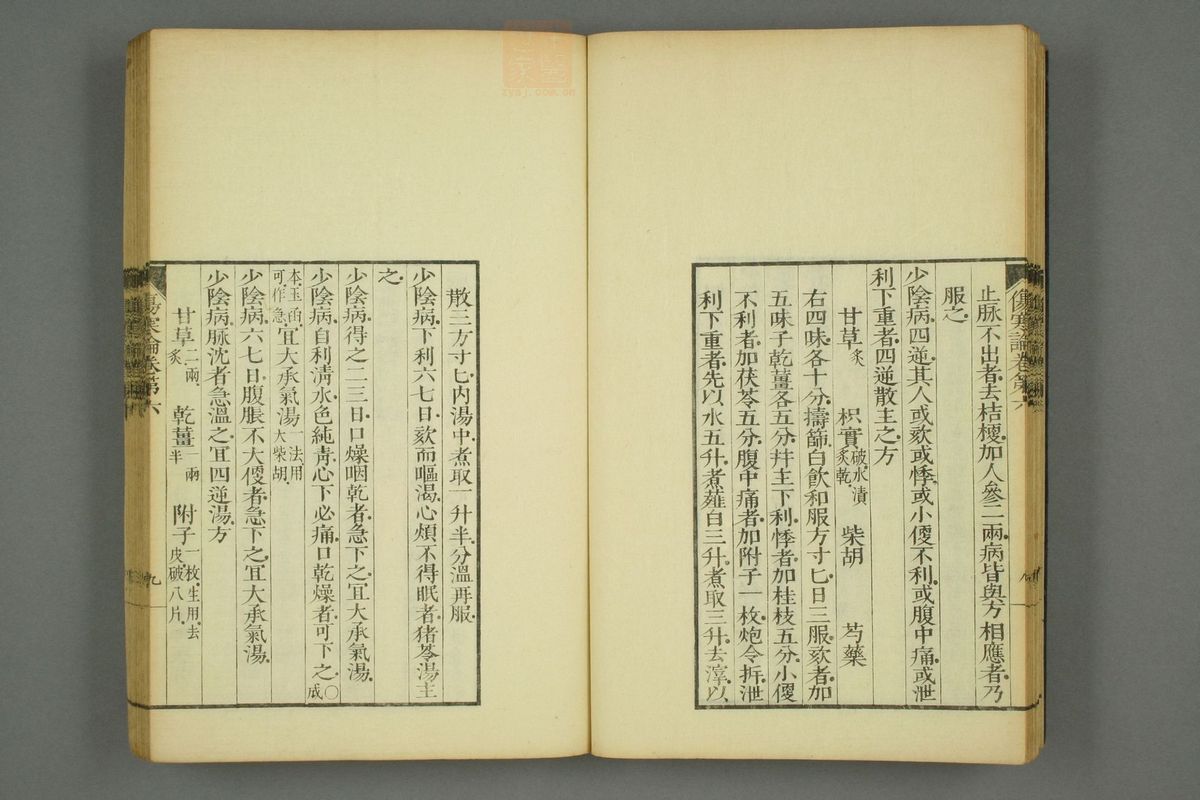 止脉不出者去桔梗加人參二兩病皆與方相應者乃
服之
少陰病四逆其人或欬或悸或小便不利或腹中痛或泄
利下重者四逆散主之方
甘草炙 枳實破水漬炙乾 柴胡 芍藥
右四味各十分擣篩白飮和服方寸匕日三服欬者加
五味子乾薑各五分幷主下利悸者加桂枝五分小便
不利者加茯苓五分腹中痛者加附子一枚炮令拆泄
利下重者先以水五升煮薤白三升煮取三升去滓以
傷寒論卷第六
散三方寸匕內湯中煮取一升半分溫再服
少陰病下利六七日欬而嘔渴心煩不得眠者猪苓湯主
之
少陰病得之二三日口燥咽乾者急下之宜大承氣湯
少陰病自利淸水色純靑心下必痛口乾燥者可下之〇成
本玉函可作急宜大承氣湯一法用大柴胡
少陰病六七日腹脹不大便者急下之宜大承氣湯
少陰病脉沈者急溫之宜四逆湯方
甘草二兩炙 乾薑一兩半 附子一枚生用去皮破八片
傷寒論卷第六
九